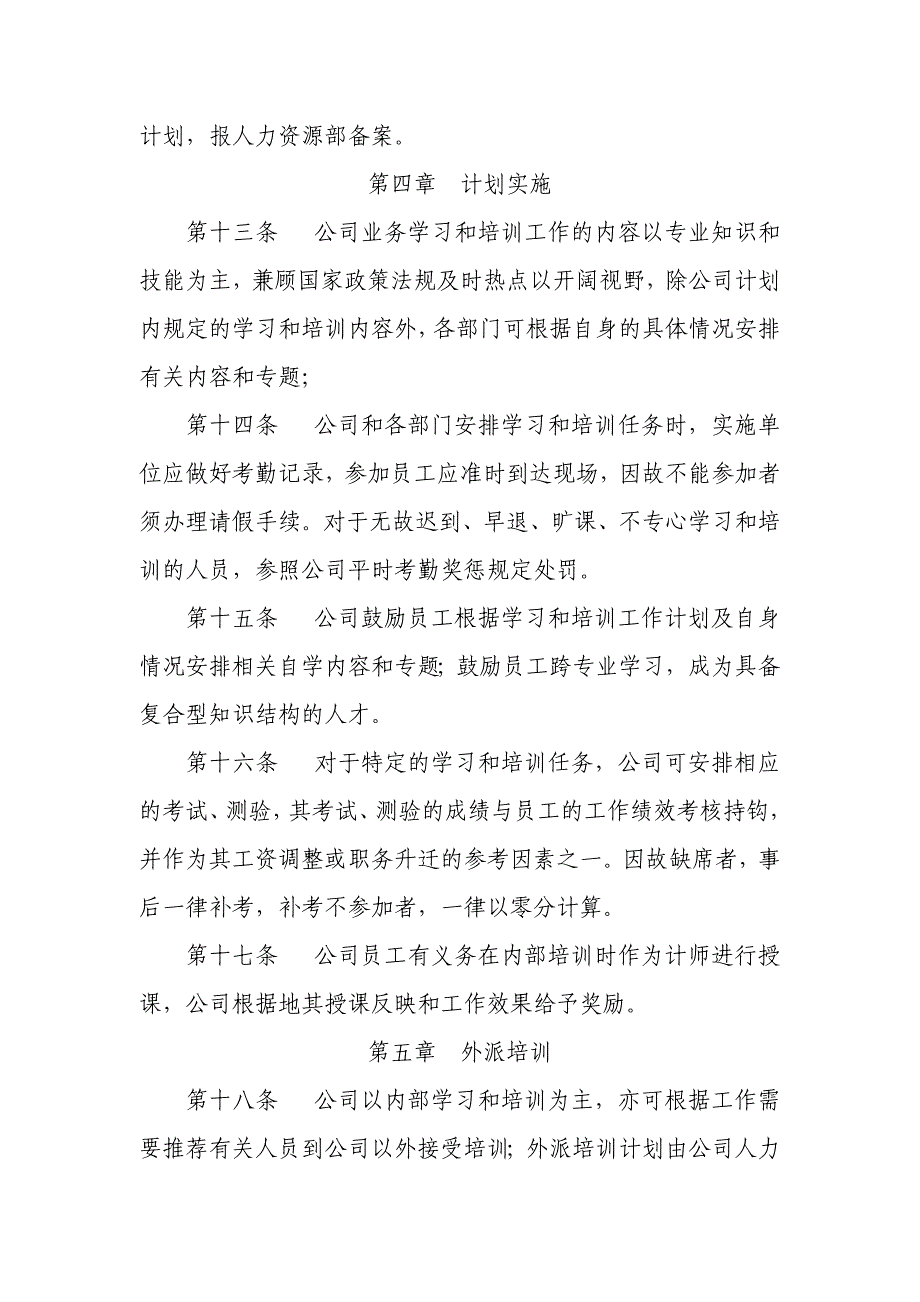 计划，报人力资源部备案。
第四章　计划实施
第十三条　公司业务学习和培训工作的内容以专业知识和
技能为主，兼顾国家政策法规及时热点以开阔视野，除公司计划
内规定的学习和培训内容外，各部门可根据自身的具体情况安排
有关内容和专题；
第十四条　公司和各部门安排学习和培训任务时，实施单
位应做好考勤记录，参加员工应准时到达现场，因故不能参加者
须办理请假手续。对于无故迟到、早退、旷课、不专心学习和培
训的人员，参照公司平时考勤奖惩规定处罚。
第十五条　公司鼓励员工根据学习和培训工作计划及自身
情况安排相关自学内容和专题；鼓励员工跨专业学习，成为具备
复合型知识结构的人才。
第十六条　对于特定的学习和培训任务，公司可安排相应
的考试、测验，其考试、测验的成绩与员工的工作绩效考核持钩，
并作为其工资调整或职务升迁的参考因素之一。因故缺席者，事
后一律补考，补考不参加者，一律以零分计算。
第十七条　公司员工有义务在内部培训时作为计师进行授
课，公司根据地其授课反映和工作效果给予奖励。
第五章　外派培训
第十八条　公司以内部学习和培训为主，亦可根据工作需
要推荐有关人员到公司以外接受培训；外派培训计划由公司人力